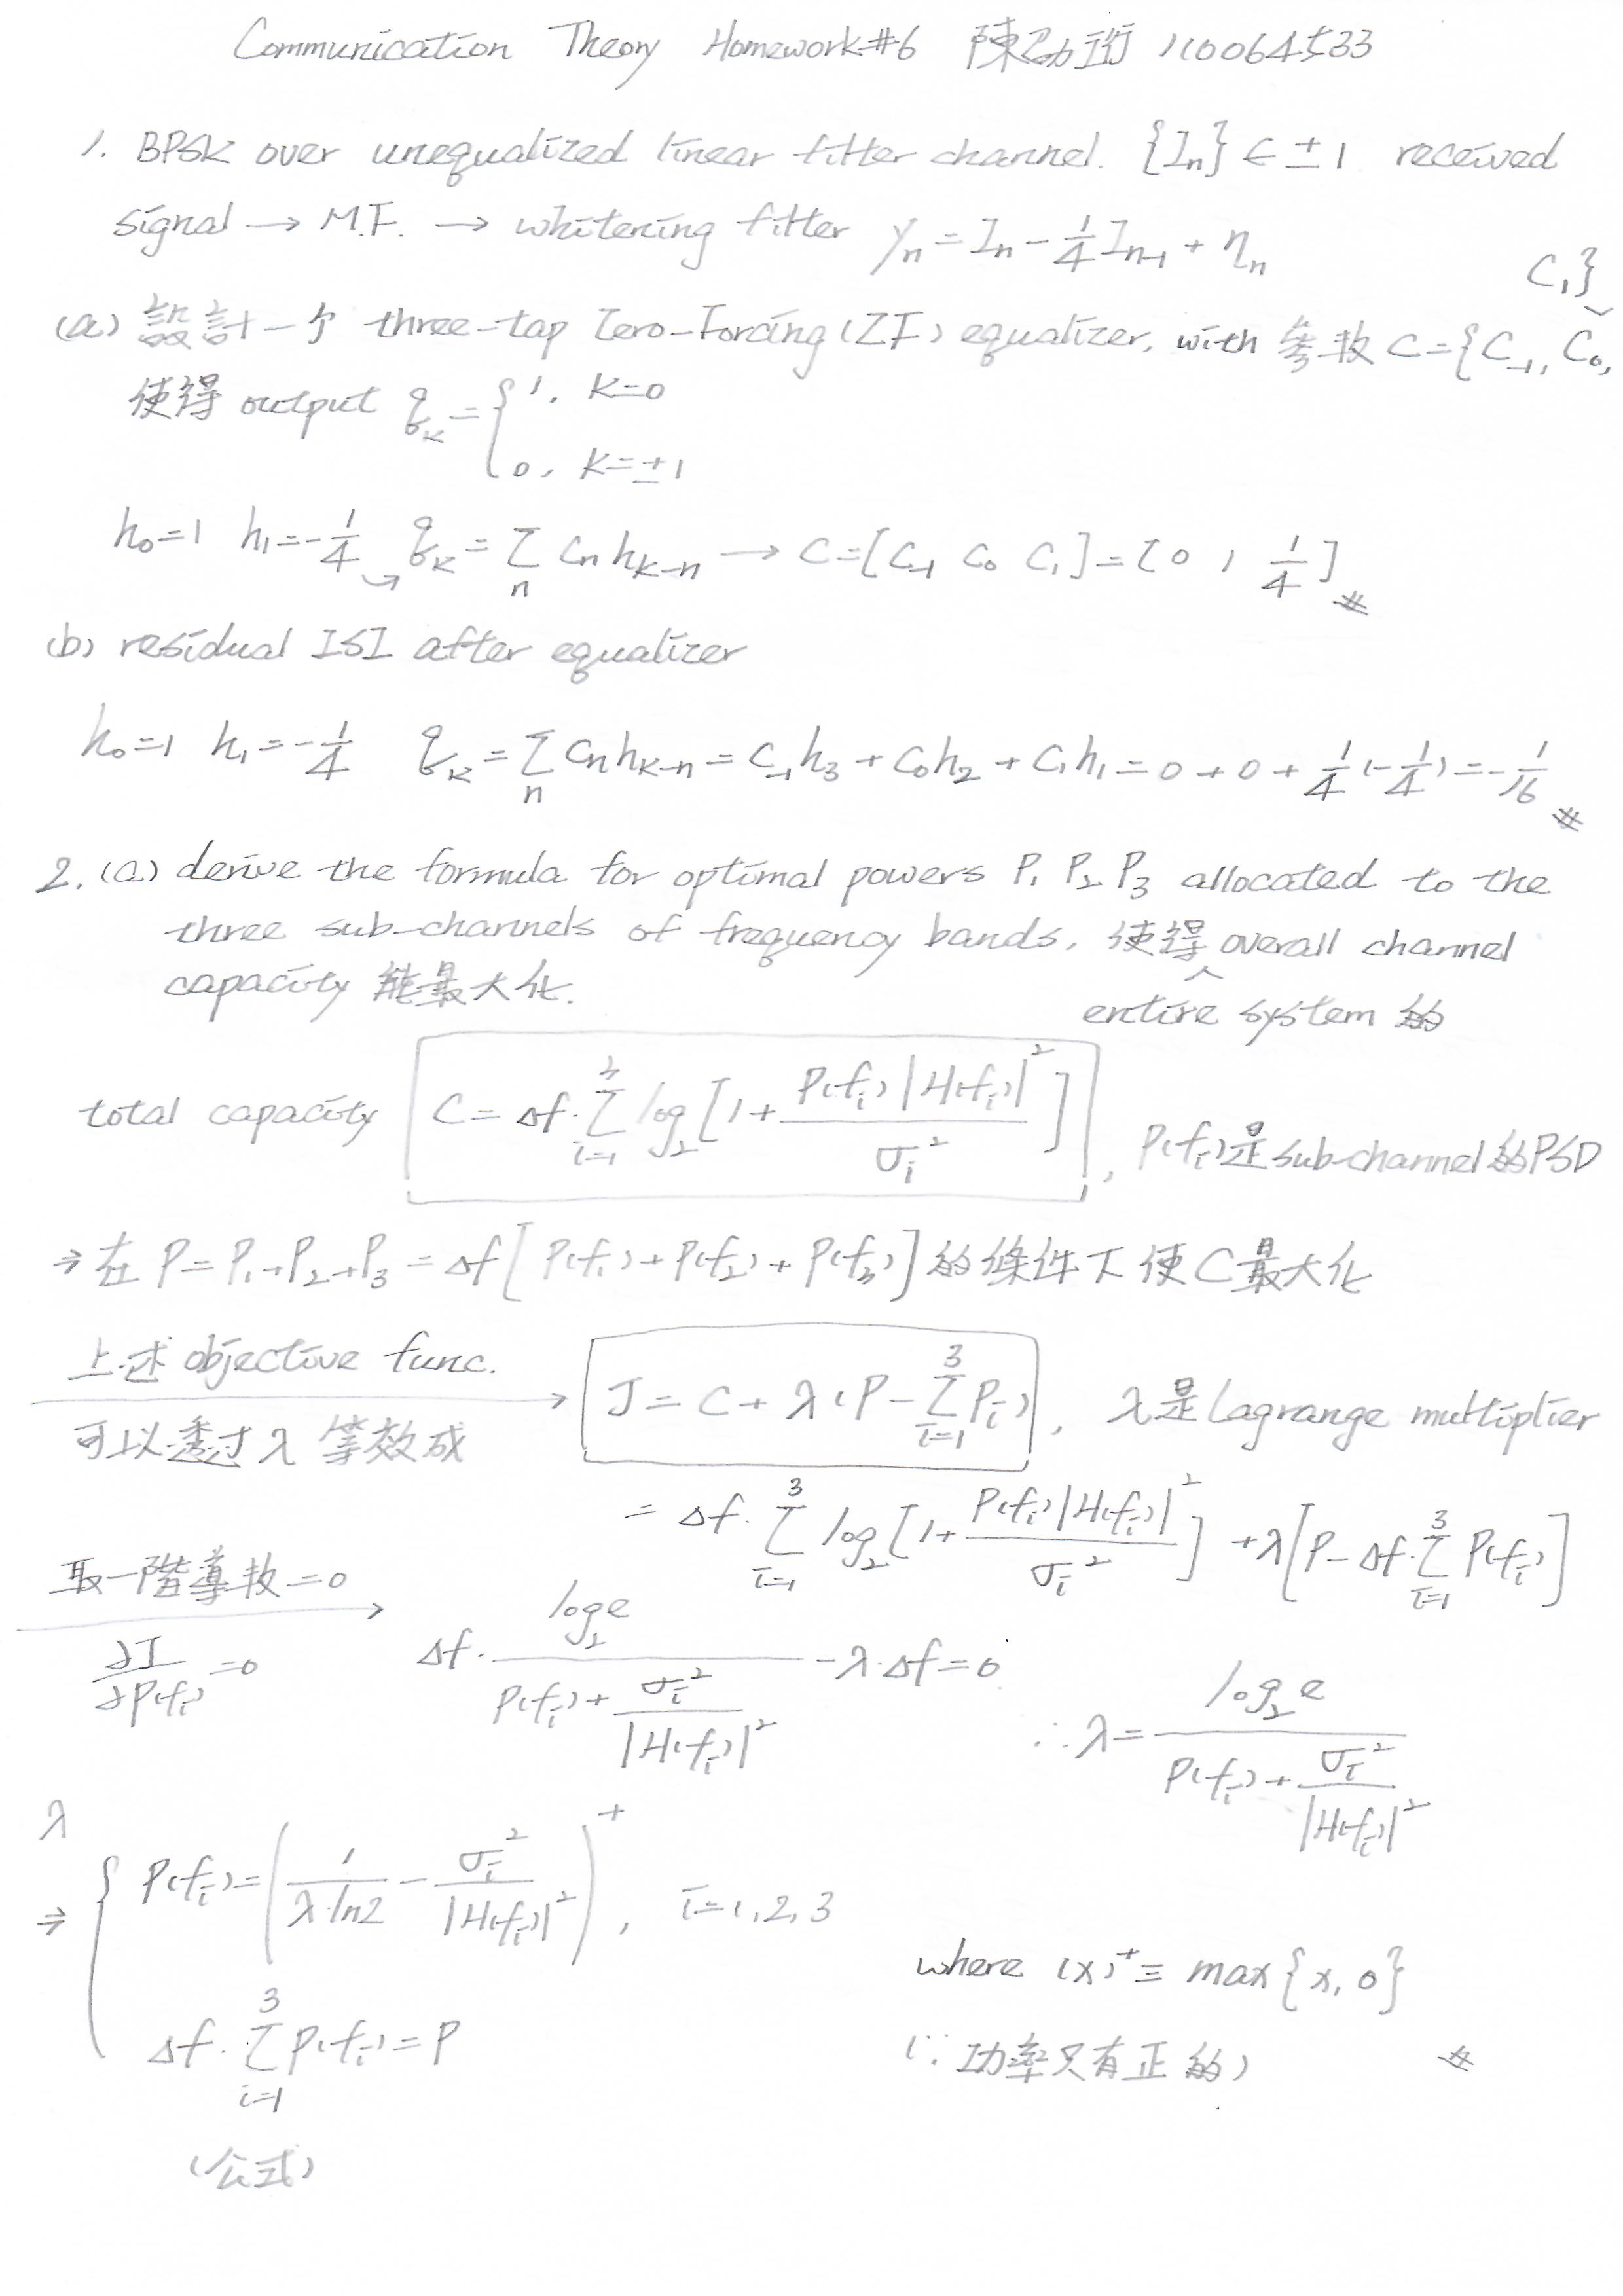 Communication Theory Homework#6 陳劭珩 110064533
1. BPSK over unequalized linear filter channel. {I_n} ∈ ±1 received
signal → M.F. → whitening filter y_n = I_n - 1/4 I_{n-1} + η_n
(a) 設計一个 three-tap Zero-Forcing (ZF) equalizer, with 參數 C={C_{-1}, C_0, C_1}
使得 output q_k = { 1, k=0
0, k=±1
h_0=1 h_1=-1/4 → q_k = Σ_n C_n h_{k-n} → C=[C_{-1} C_0 C_1]=[0 1 1/4] #
(b) residual ISI after equalizer
h_0=1 h_1=-1/4 q_k = Σ_n C_n h_{k-n} = C_{-1}h_3 + C_0h_2 + C_1h_1 = 0+0+ 1/4(-1/4) = -1/16 #
2. (a) derive the formula for optimal powers P_1 P_2 P_3 allocated to the
three sub-channels of frequency bands, 使得 entire system 的 overall channel
capacity 能最大化.
total capacity C = Δf·Σ_{i=1}^{3} log_2[1 + P(f_i)|H(f_i)|^2 / σ_i^2], P(f_i)是sub-channel的PSD
⇒ 在 P = P_1+P_2+P_3 = Δf[P(f_1)+P(f_2)+P(f_3)] 的條件下使C最大化
上述 objective func.
可以透过 λ 等效成 → J = C + λ(P - Σ_{i=1}^{3} P_i), λ是Lagrange multiplier
= Δf·Σ_{i=1}^{3} log_2[1 + P(f_i)|H(f_i)|^2 / σ_i^2] + λ[P - Δf·Σ_{i=1}^{3} P(f_i)]
取一階導數=0
∂J/∂P(f_i) = 0 → Δf · log_2 e / (P(f_i) + σ_i^2/|H(f_i)|^2) - λ·Δf = 0 ∴ λ = log_2 e / (P(f_i) + σ_i^2/|H(f_i)|^2)
λ
⇒ { P(f_i) = (1/(λ·ln2) - σ_i^2/|H(f_i)|^2)^+, i=1,2,3
where (x)^+ ≡ max{x, 0}
Δf·Σ_{i=1}^{3} P(f_i) = P (∵ 功率只有正的) #
(公式)